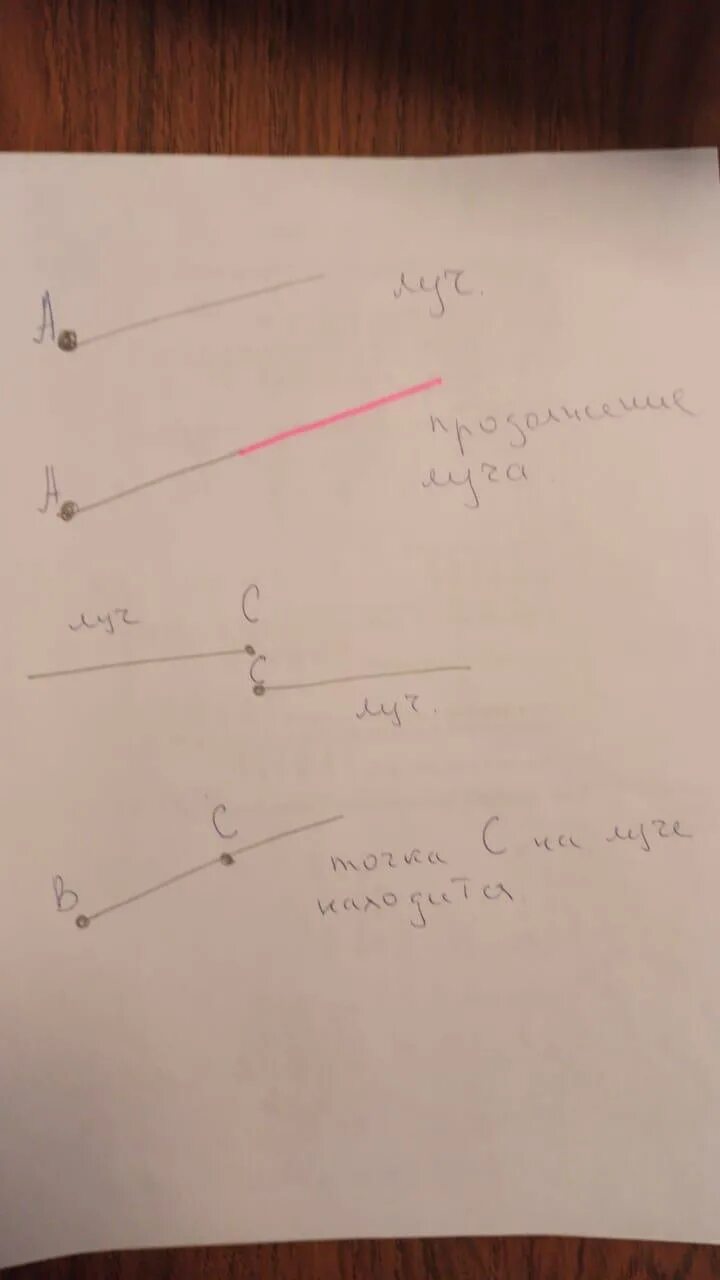 А
луч.
А
продолжение
луча
луч
С
С
луч.
С
В
точка С на луче
находится